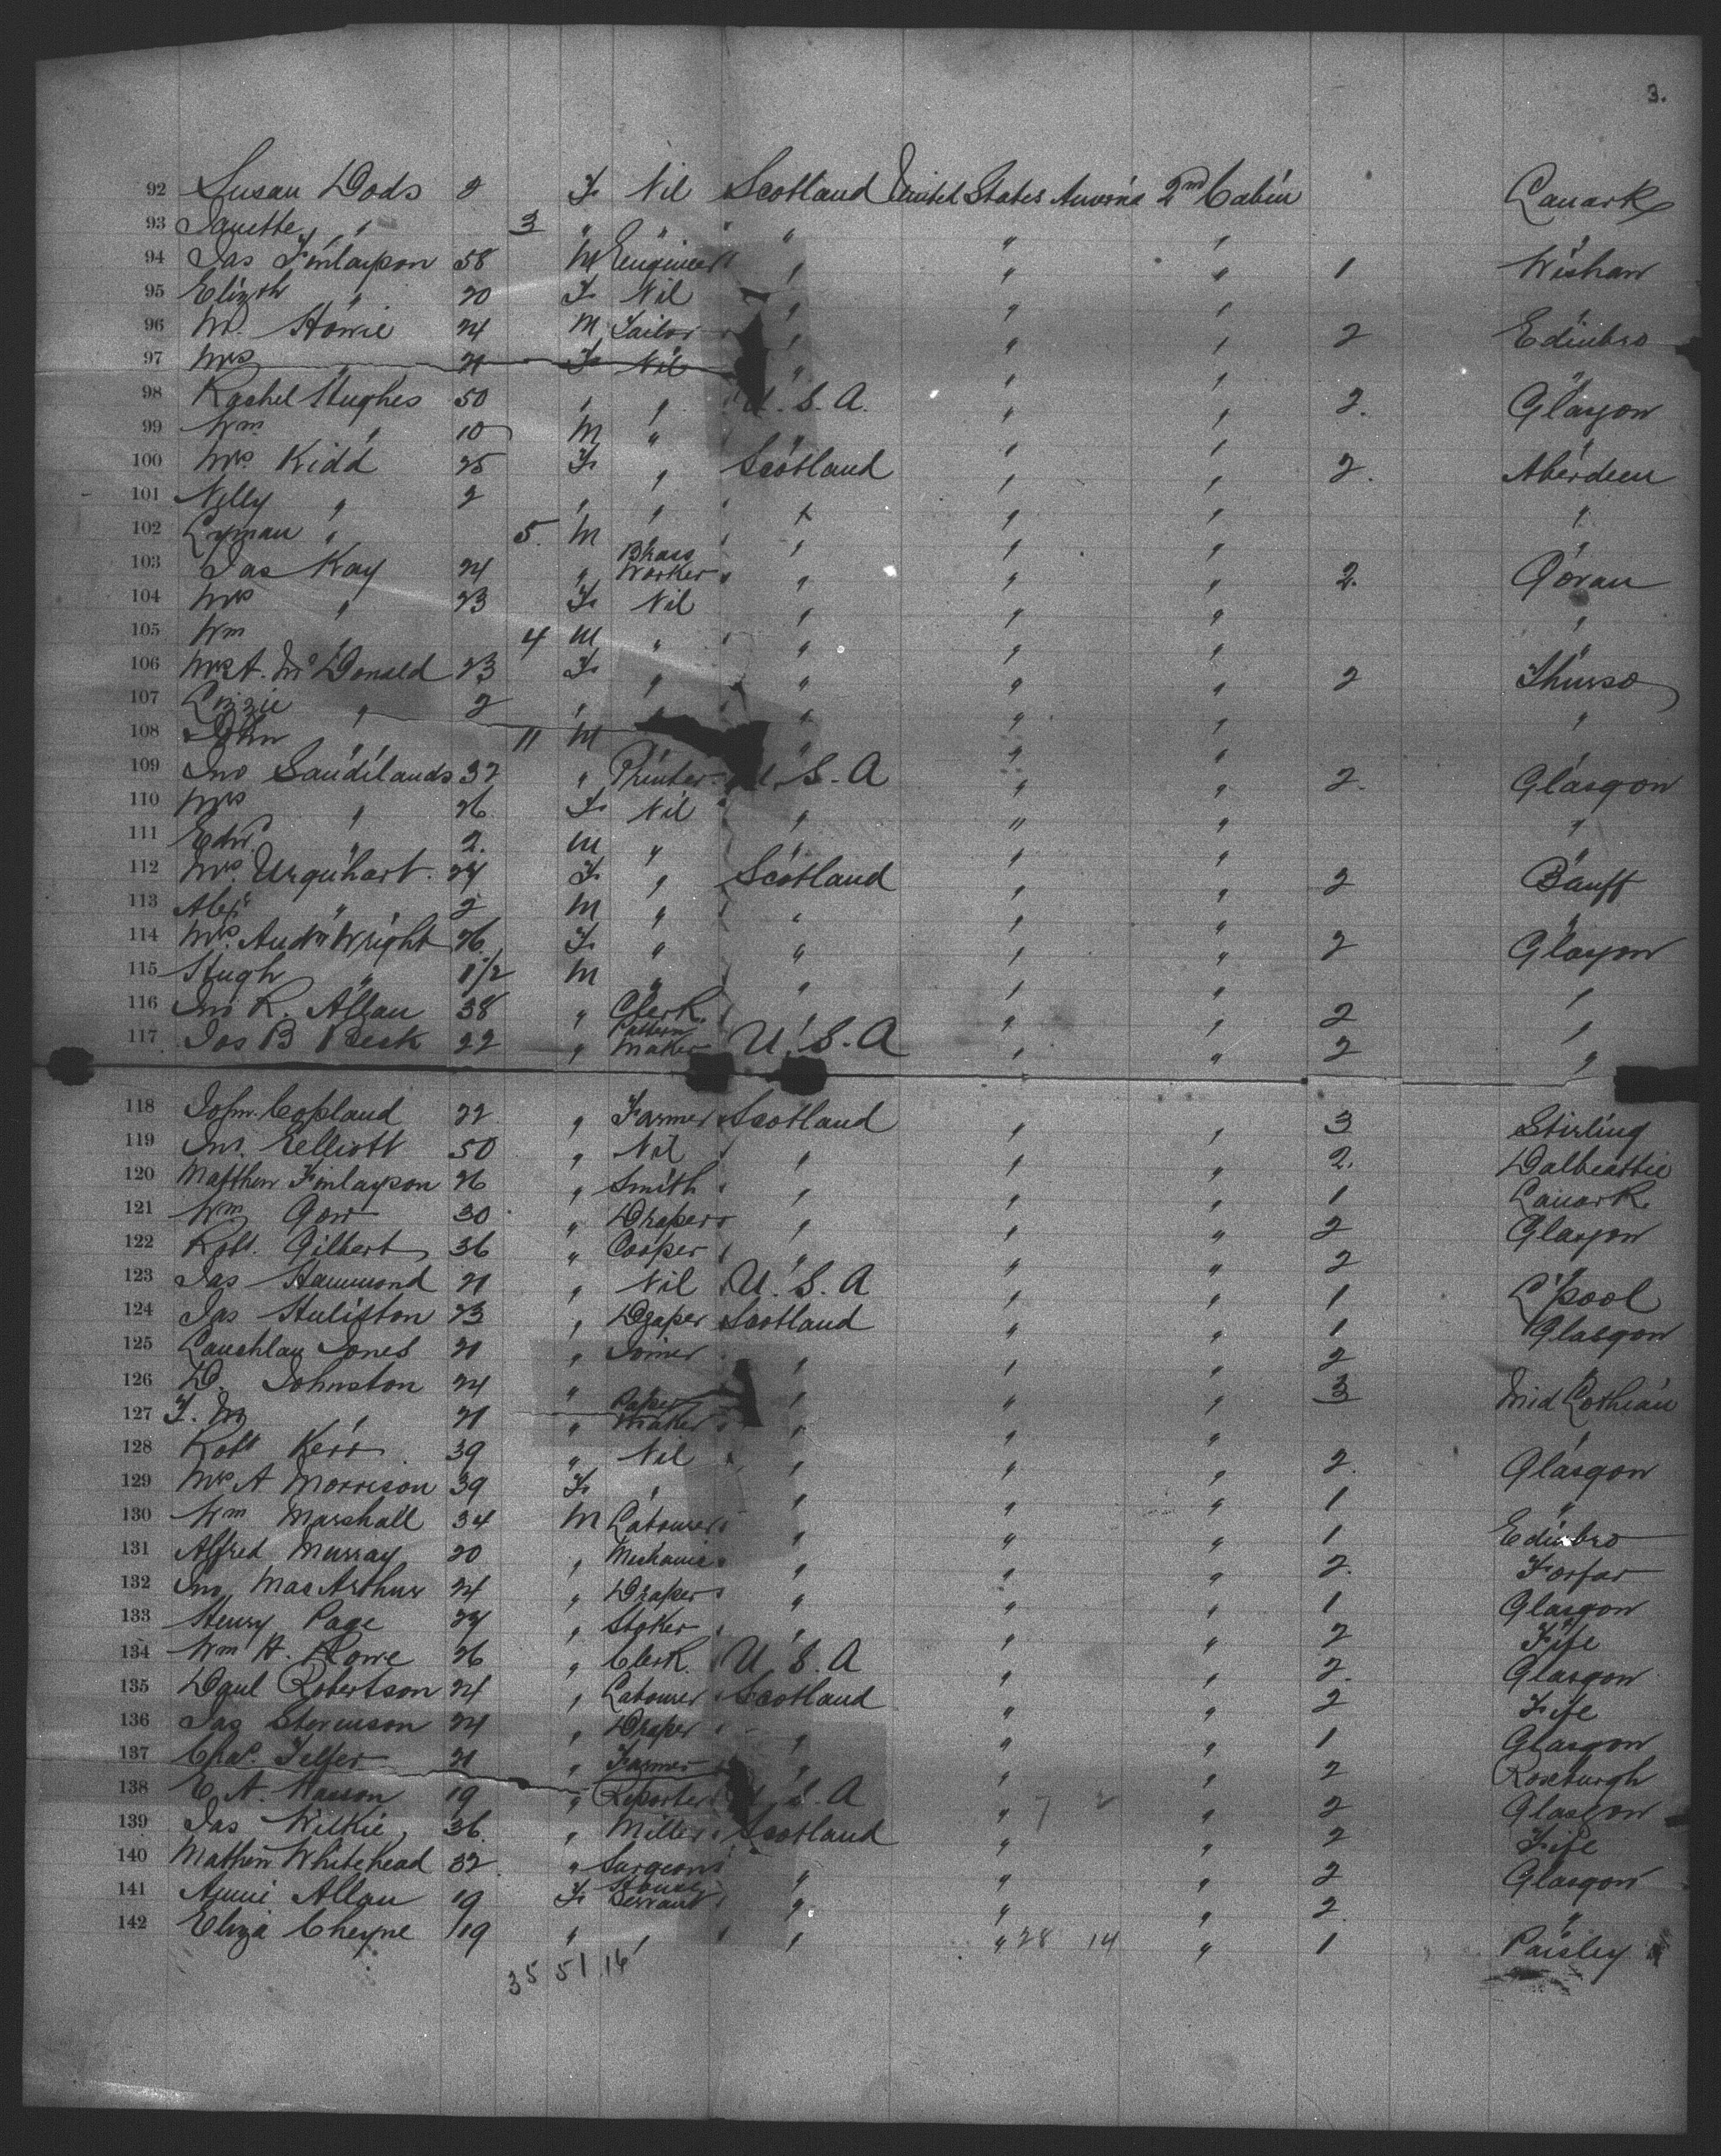 3.
92 Susan Dods 2 F Nil Scotland United States America 2nd Cabin Lanark
93 Janette " 3 " " " " " "
94 Jas Finlayson 58 M Engineer " " " 1 Wishaw
95 Elizth " 20 F Nil " " " "
96 W. Howie 24 M Tailor " " " 2 Edinbro
97 Mrs " 21 F Nil " " " "
98 Rachel Hughes 50 " " U.S.A. " " 2. Glasgow
99 Wm " 10 M " " " " "
100 Mrs Kidd 25 F " Scotland " " 2. Aberdeen
101 Nelly " 2 " " " " " "
102 Lyman " 5. M " " " " "
103 Jas Kay 24 " Brass Worker " " " 2. Govan
104 Mrs " 23 F Nil " " " "
105 Wm " 4 M " " " " "
106 Mrs A. McDonald 23 F " " " " 2 Thurso
107 Lizzie " 2 " " " " " "
108 John " 11 M " " " "
109 Jno Sandilands 32 " Printer U.S.A " " 2. Glasgow
110 Mrs " 26 F Nil " " " "
111 Edw. " 2. M " " " " "
112 Mrs. Urquhart 24 F " Scotland " " 2 Banff
113 Alex " 2 M " " " " "
114 Mrs. Andw Wright 26 F " " " " 2 Glasgow
115 Hugh " 1 1/2 M " " " " "
116 Jno R. Allan 38 " Clerk " " " 2 "
117 Jos B 22 " Pattern Maker U.S.A " " 2 "
118 John Copland 22 " Farmer Scotland " " 3 Stirling
119 Jno. Elliott 50 " Nil " " " 2. Dalbeattie
120 Matthew Finlayson 26 " Smith " " " 1 Lanark
121 Wm Gow 30 " Draper " " " 2 Glasgow
122 Robt. Gilbert 36 " Cooper " " " 2 "
123 Jas Hammond 21 " Nil U.S.A " " 1 L'pool
124 Jas Huliston 23 " Draper Scotland " " 1 Glasgow
125 Lauchlan Jones 21 " Joiner " " " 2 "
126 D. Johnston 24 " " " " " 3 Mid Lothian
127 J. M " 21 " Paper Maker " " " "
128 Robt Kerr 39 " Nil " " " 2. Glasgow
129 Mrs A Morrison 39 F " " " " 1 "
130 Wm Marshall 34 M Labourer " " " 1 Edinbro
131 Alfred Murray 20 " Mechanic " " " 2. Forfar
132 Jno MacArthur 24 " Draper " " " 1 Glasgow
133 Henry Page 24 " Stoker " " " 2 Fife
134 Wm H. Rowe 26 " Clerk U.S.A " " 2. Glasgow
135 Danl Robertson 24 " Labourer Scotland " " 2 Fife
136 Jas Stevenson 24 " Draper " " " 1 Glasgow
137 Chas. Telfer 21 " Farmer " " " 2 Roxburgh
138 E. A. Wasson 19 " Reporter U.S.A " " 2 Glasgow
139 Jas Wilkie 36 " Miller Scotland " " 2 Fife
140 Mathew Whitehead 32 " Surgeon " " " 2 Glasgow
141 Annie Allan 19 F House Servant " " " 2. "
142 Eliza Cheyne 19 " " " " 28 14 " 1 Paisley
35 51 16